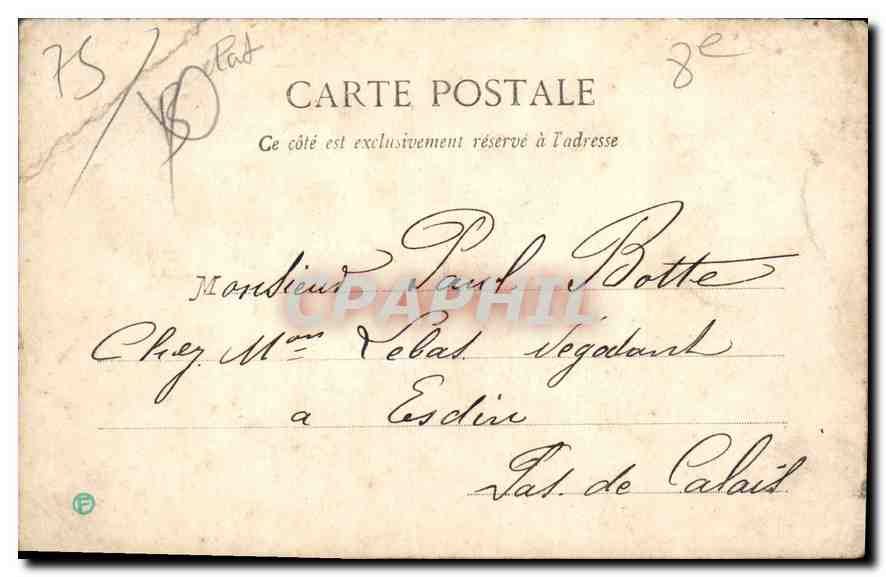 75
8e
CARTE POSTALE
Ce côté est exclusivement réservé à l'adresse
Monsieur Paul Botte
CPAPHIL
Chez Mon Lebas Négodant
a Esdin
Pas. de Calais
F